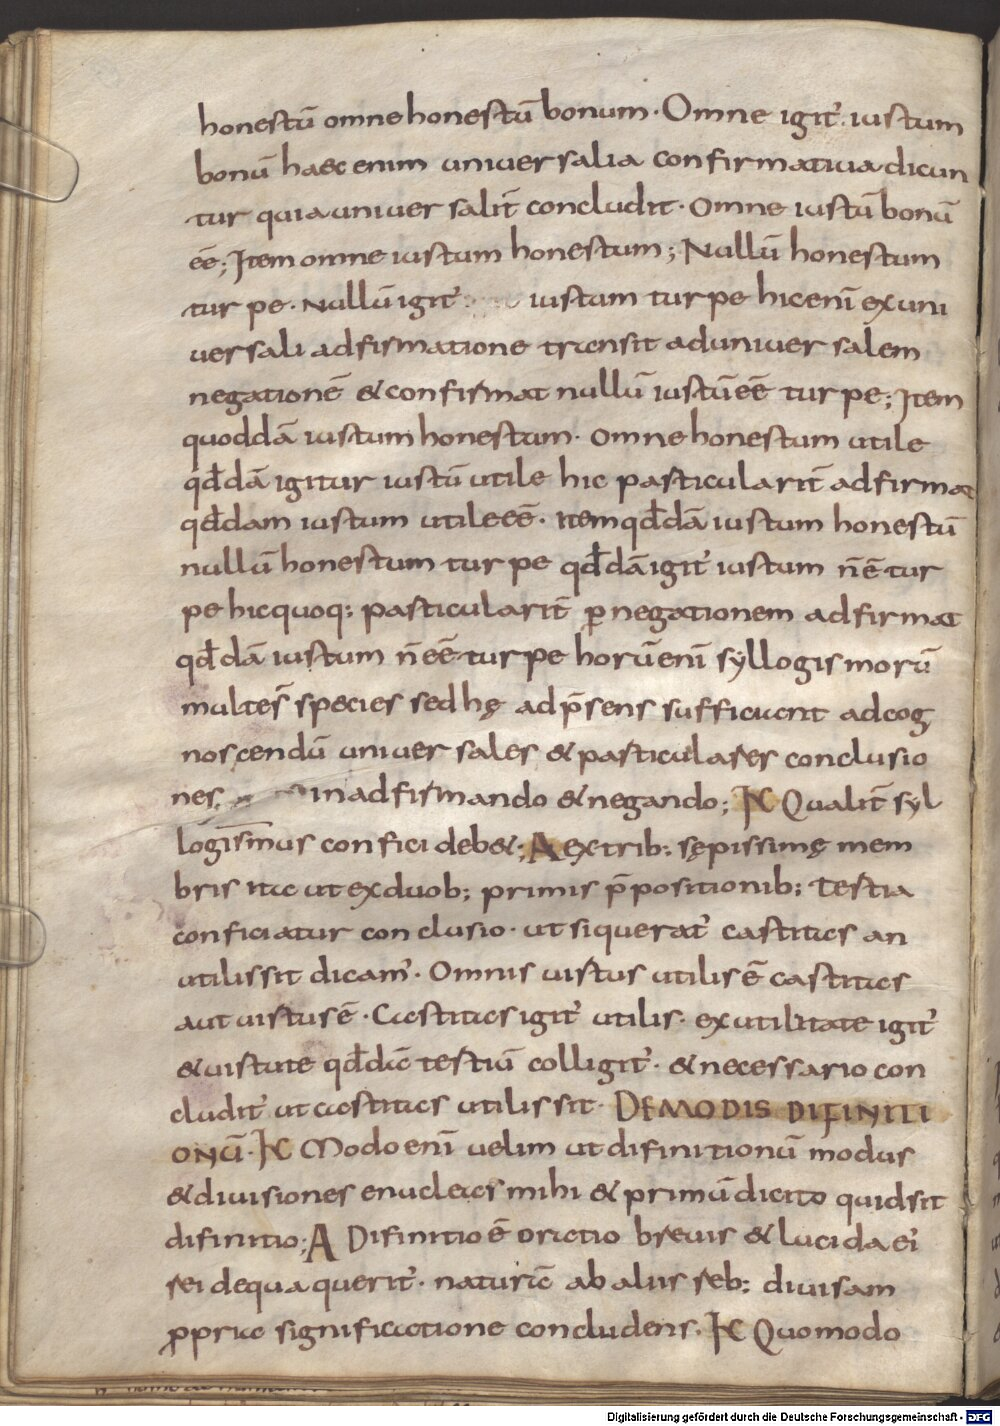 honestū omne honestū bonum · Omne igit᷒ iustum
bonū haec enim uniuersalia confirmatiua dicun
tur quia uniuersalit̄ concludit · Omne iustū bonū
eē; Item omne iustum honestum; Nullū honestum
turpe · Nullū igit᷒ iustum turpe hic eni̅ ex uni
uersali adfirmatione transit ad uniuersalem
negationē & confirmat nullū iustū eē turpe; Item
quoddā iustum honestum · omne honestum utile
qd̄dā igitur iustū utile hic particularit̄ adfirmat
qd̄dam iustum utile eē · Item qd̄dā iustum honestū
nullū honestum turpe qd̄dā igit᷒ iustum n̄ ē tur
pe hic quoq; particularit̄ ꝑ negationem adfirmat
qd̄dā iustum n̄ eē turpe horū eni̅ syllogismorū
multe s̄ species sed hę ad p̄sens sufficiant adcog
noscendū uniuersales & particulares conclusio
nes in adfirmando & negando; K Qualit̄ syl
logismus confici deb&; A ex trib; sępissimę mem
bris ita ut ex duob; primis p̄positionib; tertia
conficiatur conclusio · ut si querat᷒ castitas an
utilis sit dicam᷒ · Omnis uirtus utilis ē castitas
aut uirtus ē · Castitas igit᷒ utilis · ex utilitate igit᷒
& uirtute qd̄dā tertiū colligit᷒ · & necessario con
cludit᷒ ut castitas utilis sit · DE MODIS DIFINITI
ONŪ · K Modo eni̅ uelim ut difinitionū modus
& diuisiones enucleas mihi & primū dicito quid sit
difinitio; A Difinitio ē oratio breuis & lucida ei᷒
rei de qua querit᷒ · naturā ab aliis reb; diuisam
ꝓpria significatione concludens · K Quomodo
Digitalisierung gefördert durch die Deutsche Forschungsgemeinschaft - DFG